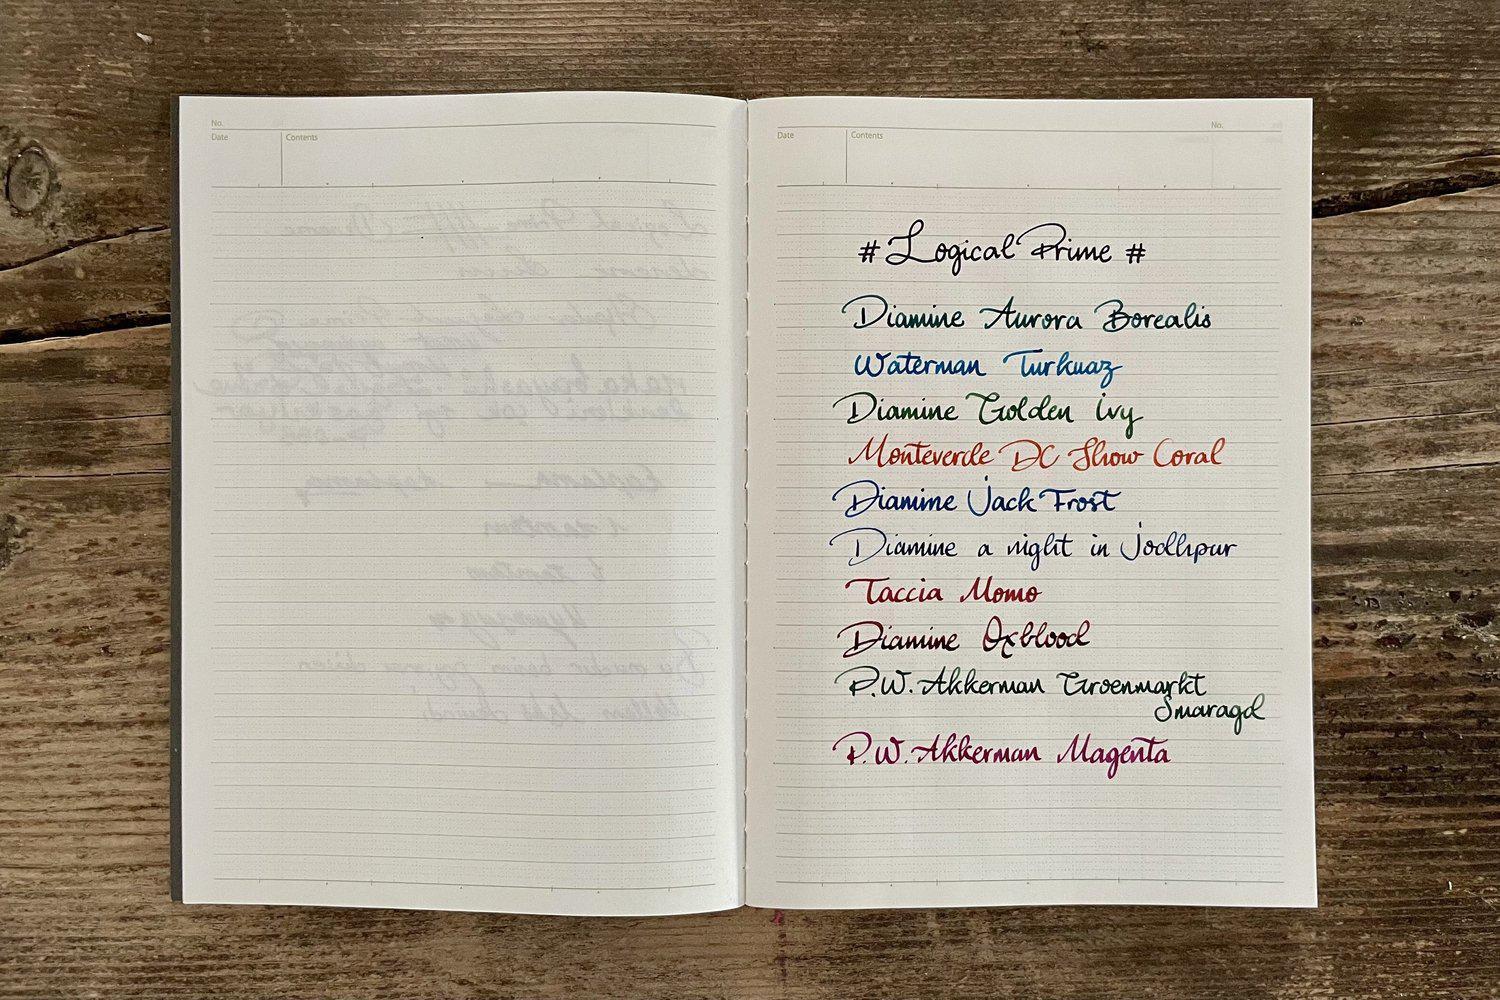 No.
Date Contents
No.
Date Contents
# Logical Prime #
Diamine Aurora Borealis
Waterman Turkuaz
Diamine Golden ivy
Monteverde DC Show Coral
Diamine Jack Frost
Diamine a night in Jodhpur
Taccia Momo
Diamine Oxblood
P.W. Akkerman Groenmarkt
Smaragd
P.W. Akkerman Magenta